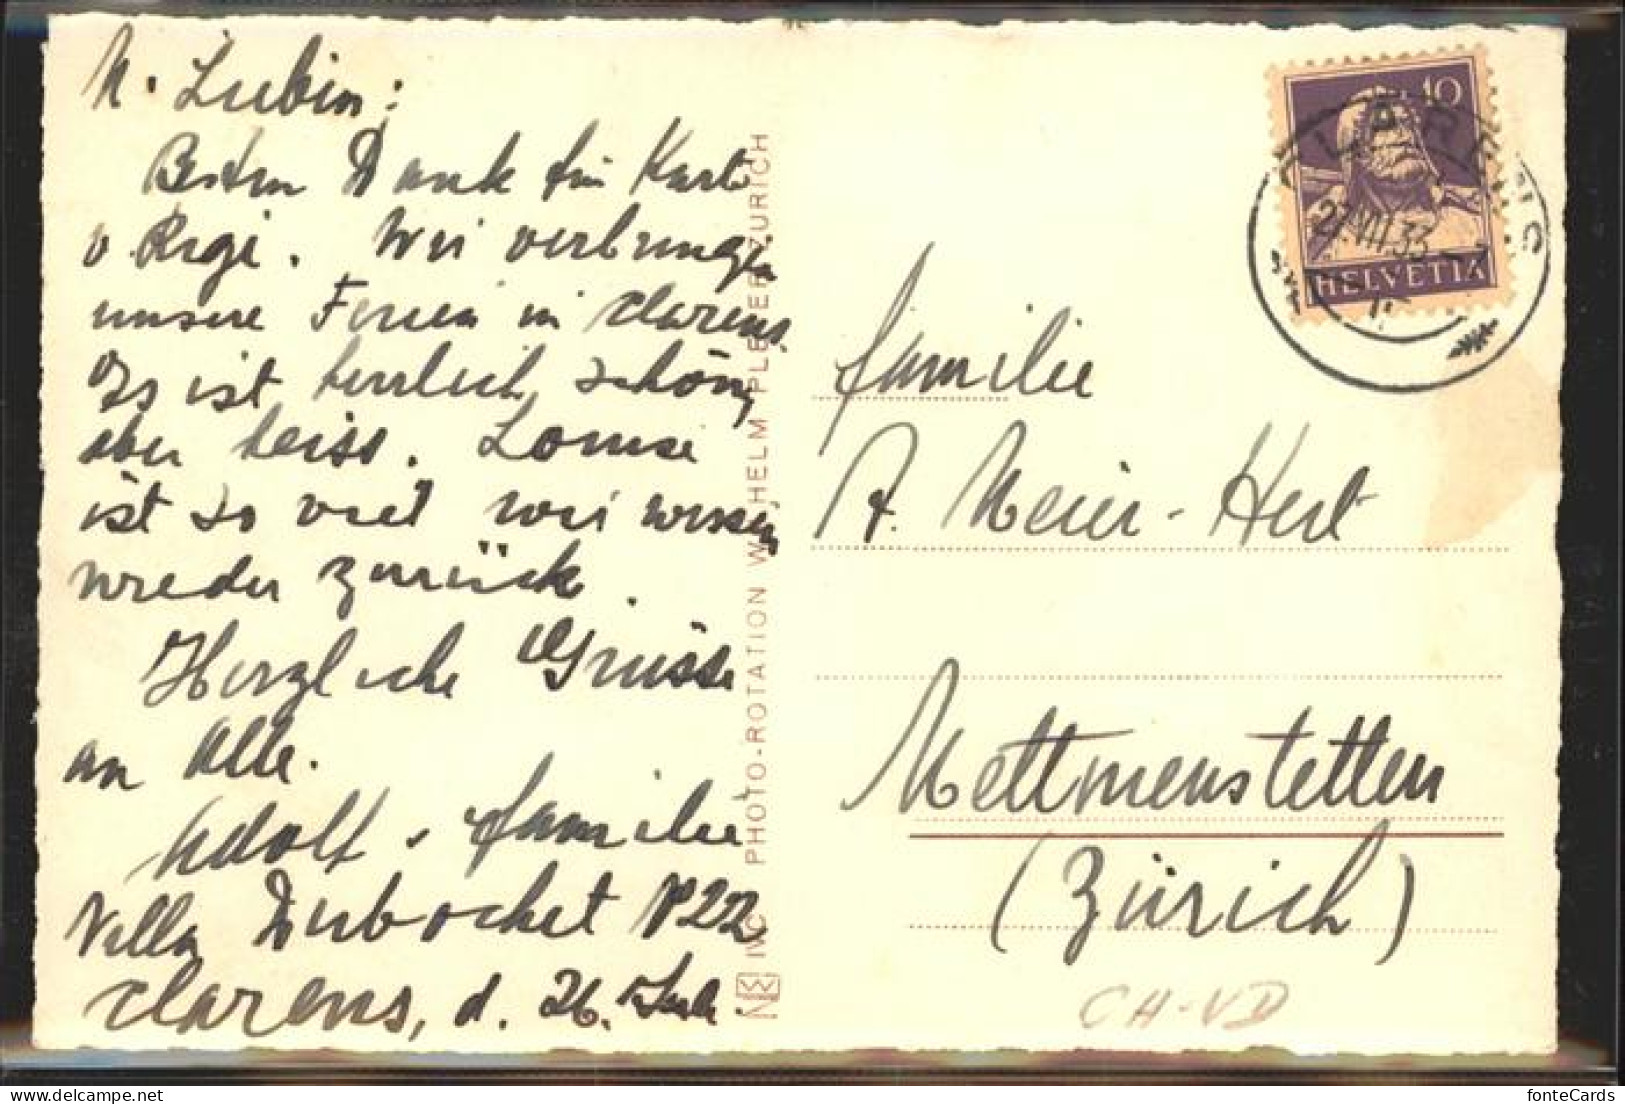 M. Lieben:
Besten Dank für Karte
v Rigi. Wir verbringen
unsere Ferien in Clarens
Es ist herrlich schön,
aber heiss. Louise
ist so viel wir wissen
wieder zurück.
Herzliche Grüsse
an Alle.
Adolf & Familie
Villa Dubochet No 22
Clarens, d. 26. Juli.
IWC PHOTO-ROTATION WILHELM PLEYER ZURICH
10
CLARENS
27.VII.33
HELVETIA
Familie
A. Meier-
Mettmenstetten
(Zürich)
CH-VD
fonteCards